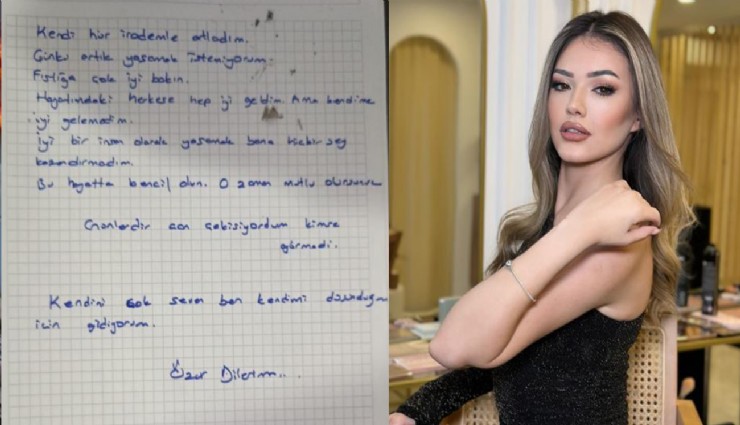 Kendi hür irademle atladım.
Çünkü artık yaşamak istemiyorum.
Fıstığa çok iyi bakın.
Hayatımdaki herkese hep iyi geldim. Ama kendime
iyi gelemedim.
iyi bir insan olarak yaşamak bana hiçbir şey
kazandırmadım.
Bu hayatta bencil olun. O zaman mutlu olursunuz
can çekişiyordum kimse
görmedi.
Kendini çok seven ben kendimi
için gidiyorum.
Özür Dilerim...